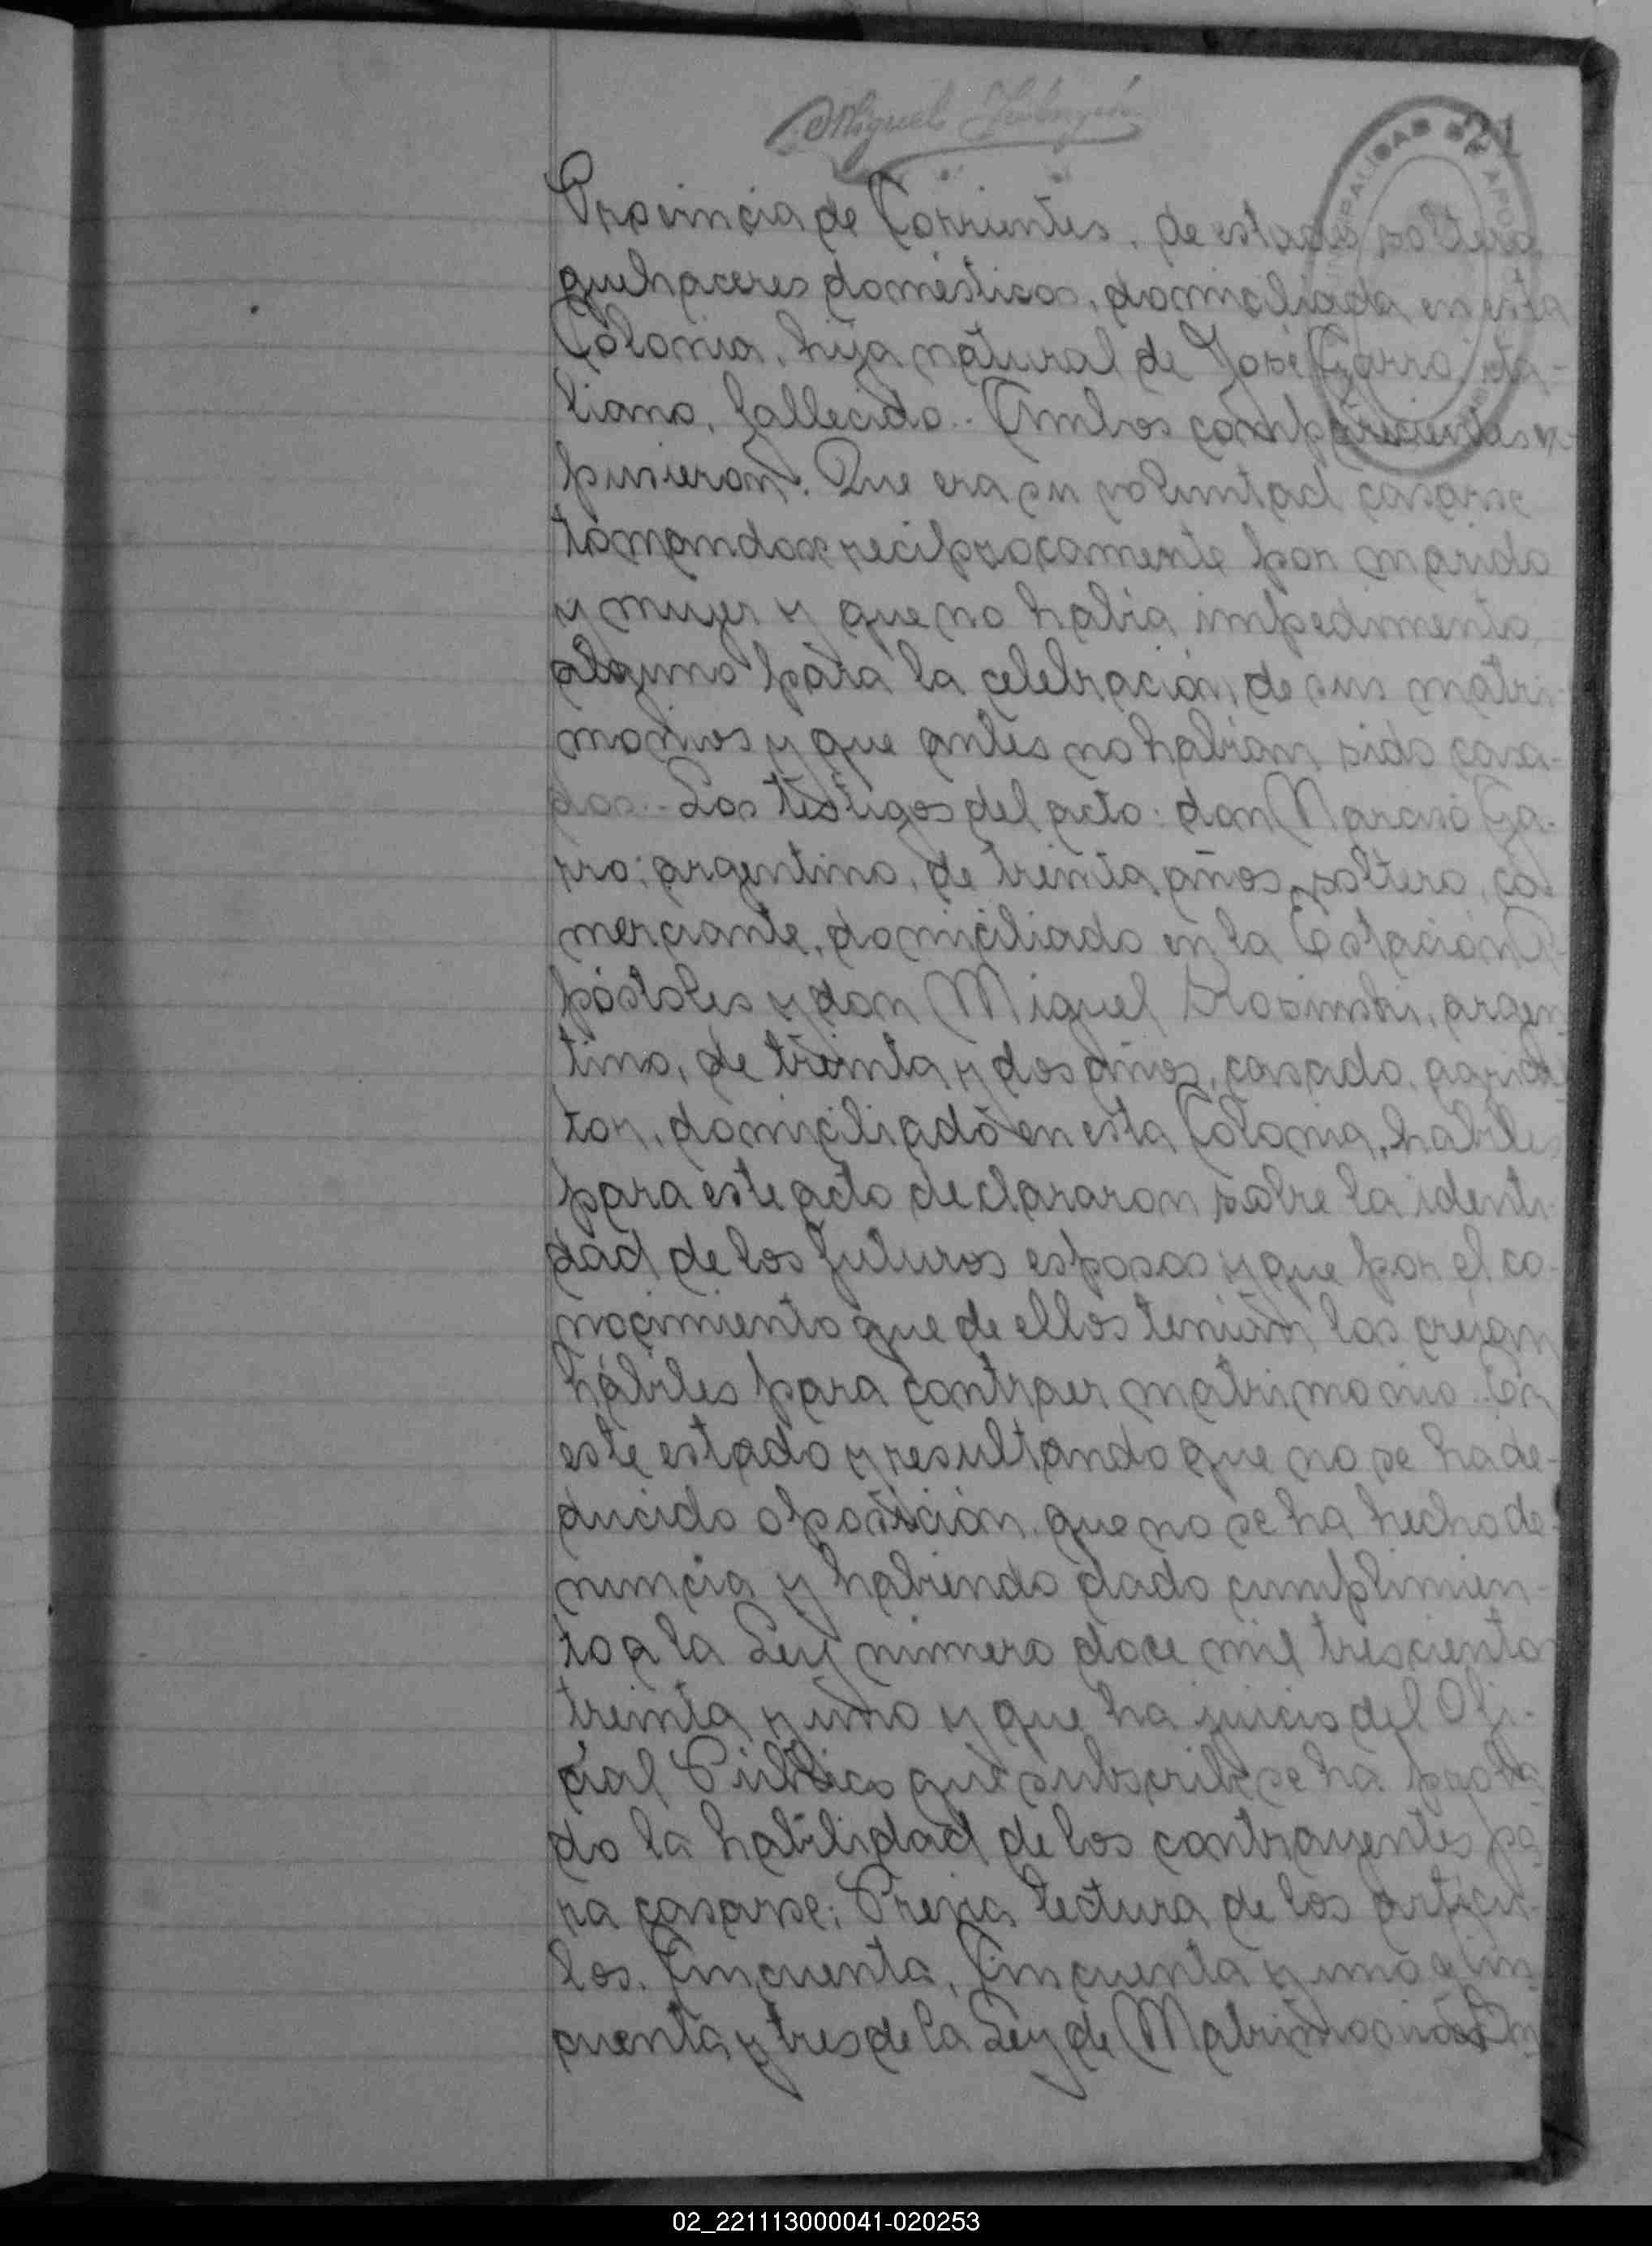 Miguel
21
MUNICIPALIDAD DE APOSTOLES
Provincia de Corrientes, de estado soltera
quehaceres domésticos, domiciliada en esta
Colonia, hija natural de José Garro, ita-
liano, fallecido.. Ambos comparecientes ex-
pusieron: Que era su voluntad casarse
tomandose reciprocamente por marido
y mujer y que no habia impedimento
alguno para la celebración de sus matri-
monios y que antes no habian sido casa-
dos.- Los testigos del acto: don Narciso Ga-
rro; argentino, de treinta años, soltero, co-
merciante, domiciliado en la Estación A-
póstoles y don Miguel argen-
tino, de treinta y dos años, casado, agricul
tor, domiciliado en esta Colonia, habiles
para este acto declararon sobre la identi-
dad de los futuros esposos y que por el co-
nocimiento que de ellos tenian los creian
hábiles para contraer matrimonio.. En
este estado y resultando que no se ha de-
ducido oposición, que no se ha hecho de-
nuncia y habiendo dado cumplimien-
to a la Ley número doce mil trescientos
treinta y uno y que ha juicio del Ofi-
cial Público que subscribe se ha proba
do la habilidad de los contrayentes pa
ra casarse; Previa lectura de los artícu-
los. Cincuenta, Cincuenta y uno y Cin-
cuenta y tres de la Ley de Matrimonio
02_221113000041-020253